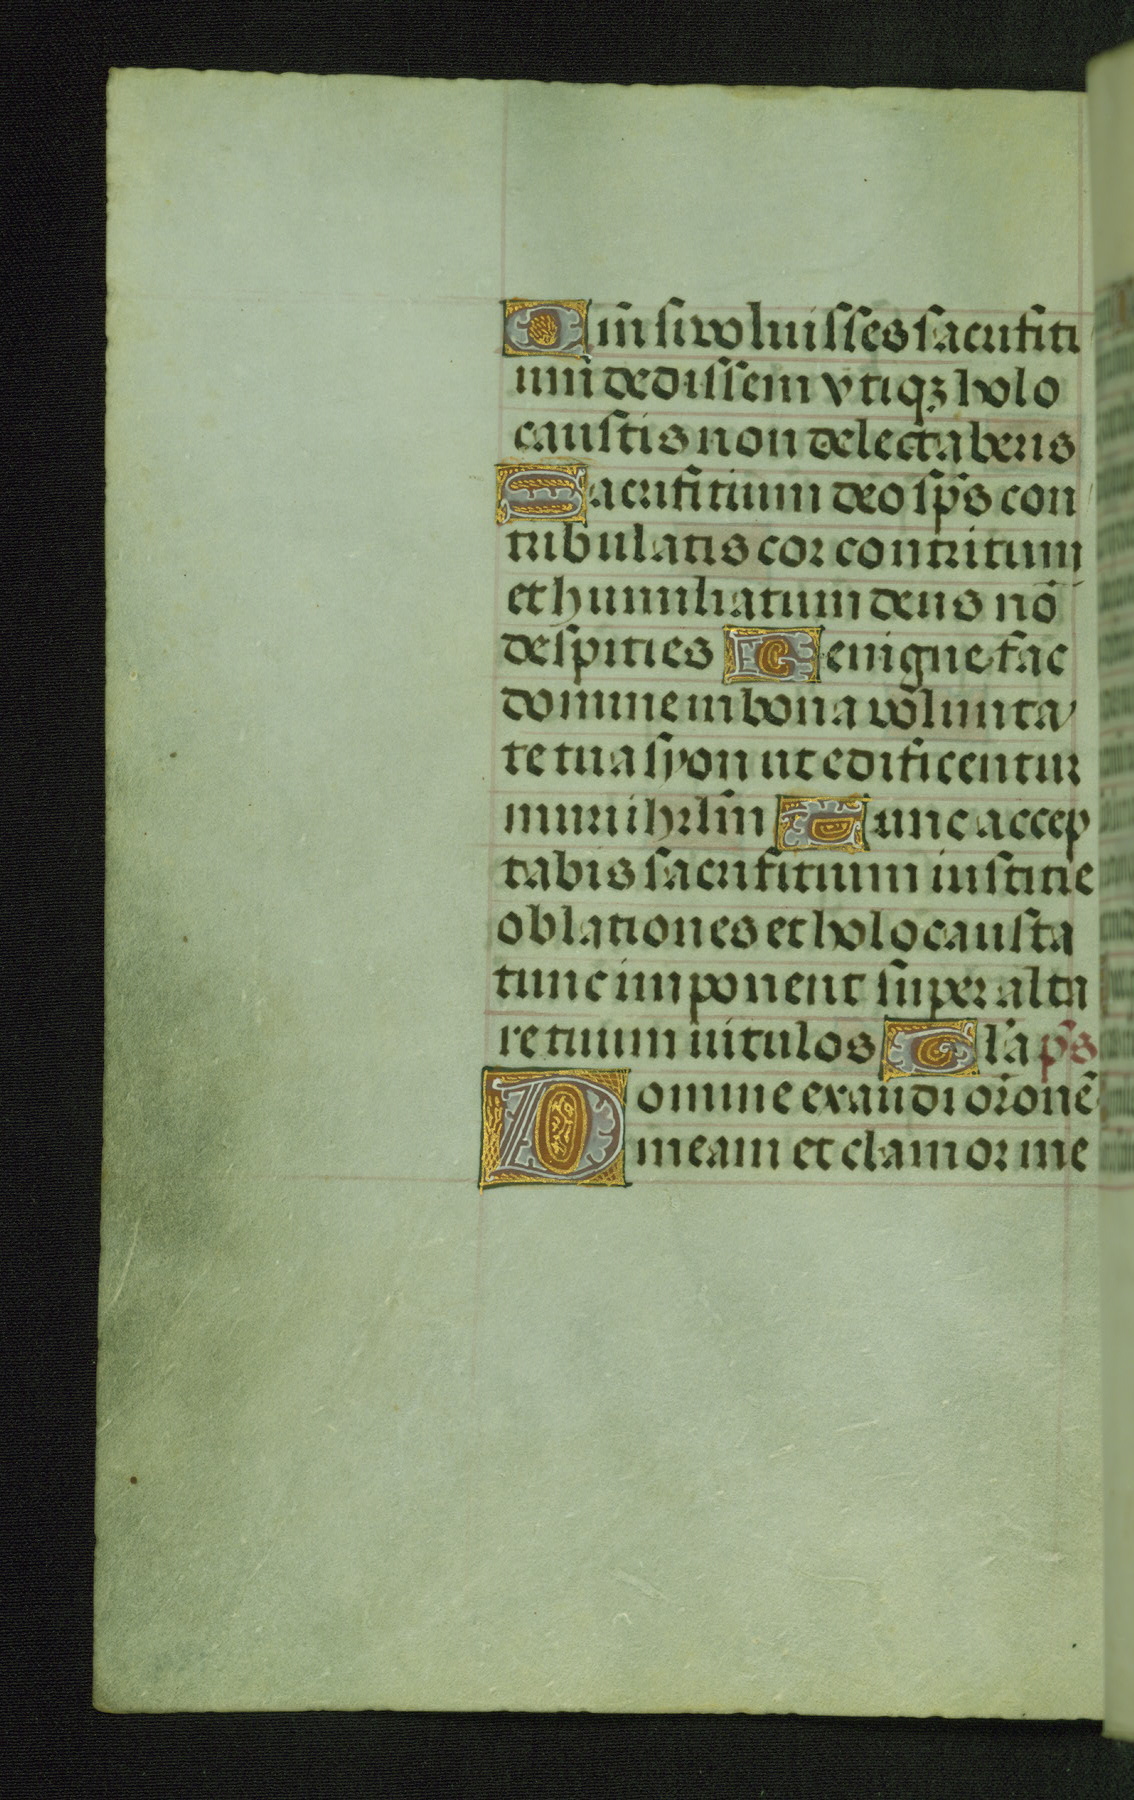 Qm̄ si voluisses sacrifiti
um dedissem vtiqꝫ holo
caustis non delectaberis
Sacrifitium deo sp̄s con
tribulatis cor contritum
et humiliatum deus nō
despities Benigne fac
domine in bona volunta
te tua syon ut edificentur
muri ihrlm̄ Tunc accep
tabis sacrifitium iustitie
oblationes et holocausta
tunc imponent super alta
re tuum uitulos Gl'a ps
Domine exaudi oronē
meam et clamor me